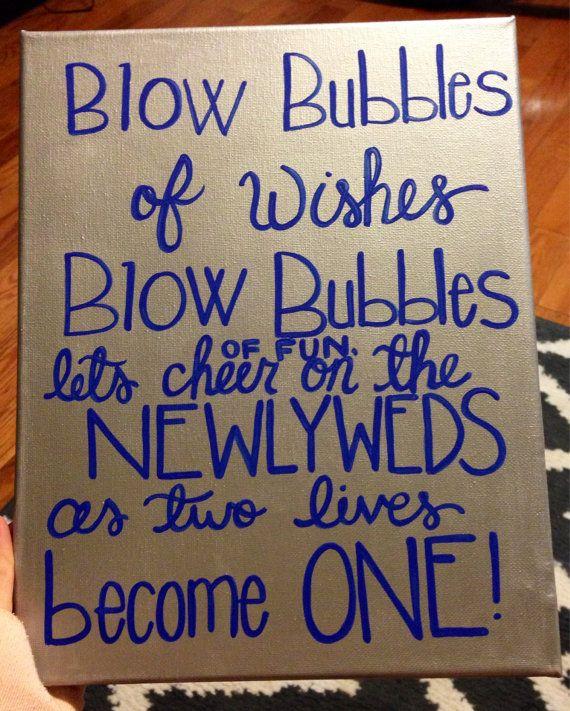 Blow Bubbles
of Wishes
Blow Bubbles
OF FUN.
lets cheer on the
NEWLYWEDS
as two lives
become ONE!